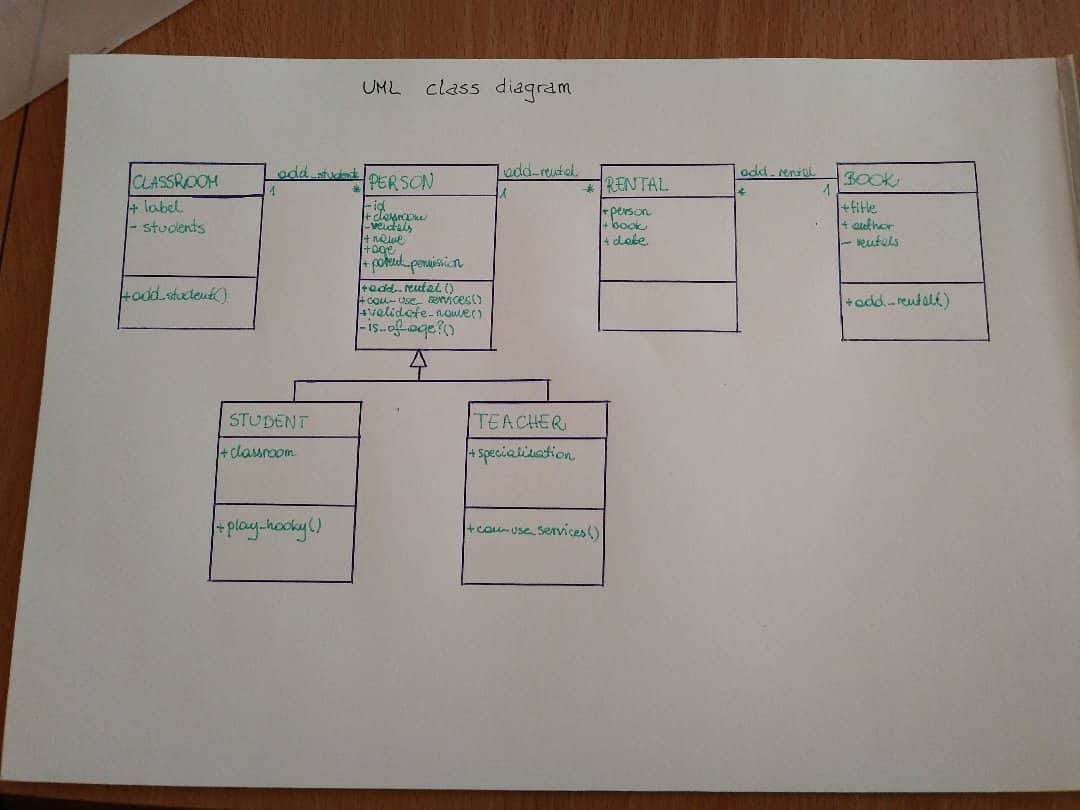 UML class diagram
CLASSROOM
+ label
- students
+add_student()
add_student
1
*
PERSON
-id
+classroom
-rentals
+name
+age
+parent_permission
+add_rental()
+can_use_services()
+validate_name()
-is_of_age?()
add_rental
1
*
RENTAL
+person
+book
+date
add_rental
*
1
BOOK
+title
+author
- rentals
+add_rental()
STUDENT
+classroom
+play_hooky()
TEACHER
+specialization
+can_use_services()